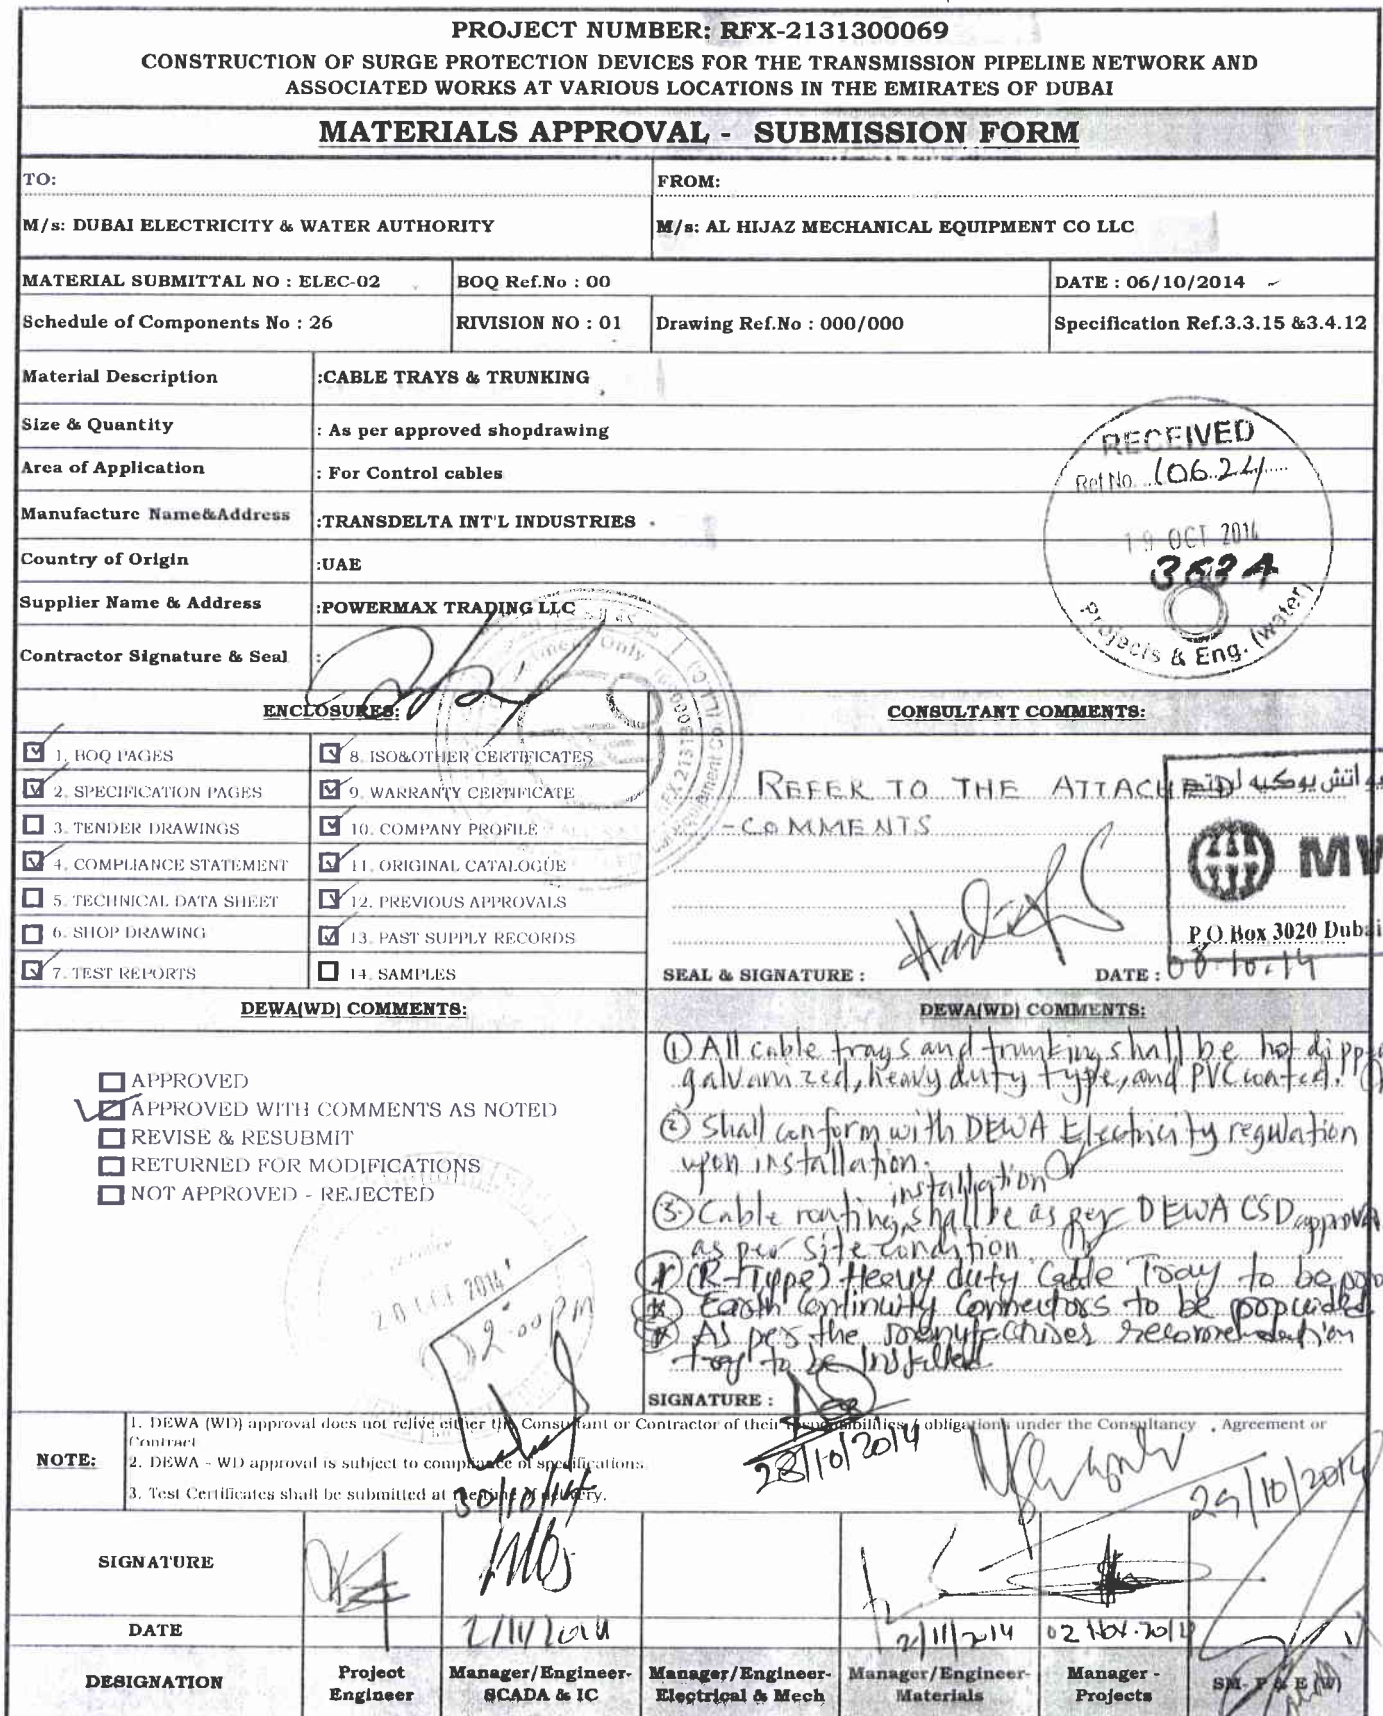 PROJECT NUMBER: RFX-2131300069
CONSTRUCTION OF SURGE PROTECTION DEVICES FOR THE TRANSMISSION PIPELINE NETWORK AND
ASSOCIATED WORKS AT VARIOUS LOCATIONS IN THE EMIRATES OF DUBAI
MATERIALS APPROVAL - SUBMISSION FORM
TO: FROM:
M/s: DUBAI ELECTRICITY & WATER AUTHORITY M/s: AL HIJAZ MECHANICAL EQUIPMENT CO LLC
MATERIAL SUBMITTAL NO : ELEC-02 BOQ Ref.No : 00 DATE : 06/10/2014
Schedule of Components No : 26 RIVISION NO : 01 Drawing Ref.No : 000/000 Specification Ref.3.3.15 &3.4.12
Material Description :CABLE TRAYS & TRUNKING
Size & Quantity : As per approved shopdrawing
Area of Application : For Control cables
Manufacture Name&Address :TRANSDELTA INT'L INDUSTRIES
Country of Origin :UAE
Supplier Name & Address :POWERMAX TRADING LLC
Contractor Signature & Seal :
RECEIVED
Ref No. 10624
19 OCT 2014
3634
Projects & Eng. (water)
ENCLOSURES:
1. BOQ PAGES 8. ISO&OTHER CERTIFICATES
2. SPECIFICATION PAGES 9. WARRANTY CERTIFICATE
3. TENDER DRAWINGS 10. COMPANY PROFILE
4. COMPLIANCE STATEMENT 11. ORIGINAL CATALOGUE
5. TECHNICAL DATA SHEET 12. PREVIOUS APPROVALS
6. SHOP DRAWING 13. PAST SUPPLY RECORDS
7. TEST REPORTS 14. SAMPLES
CONSULTANT COMMENTS:
REFER TO THE ATTACHED
-COMMENTS
MW
P.O Box 3020 Dubai
SEAL & SIGNATURE : DATE : 08.10.14
DEWA(WD) COMMENTS:
APPROVED
APPROVED WITH COMMENTS AS NOTED
REVISE & RESUBMIT
RETURNED FOR MODIFICATIONS
NOT APPROVED - REJECTED
20 OCT 2014
2:00 PM
DEWA(WD) COMMENTS:
① All cable trays and trunking shall be hot dipped
galvanized, heavy duty type, and PVC coated.
② Shall conform with DEWA Electricity regulation
upon installation.
installation
③ Cable routing, shall be as per DEWA CSD approval
as per site condition.
(R-Type) Heavy duty Cable Tray to be
Earth Continuity Connectors to be
As per the
tray to be installed
SIGNATURE :
28/10/2014
29/10/2014
30/10/14
NOTE:
1. DEWA (WD) approval does not relive either the Consultant or Contractor of their responsibilities / obligations under the Consultancy . Agreement or
Contract
2. DEWA - WD approval is subject to compliance of specifications.
3. Test Certificates shall be submitted at the time of delivery.
SIGNATURE
DATE 2/11/2014 2/11/2014 02 Nov. 2014
DESIGNATION Project Engineer Manager/Engineer- SCADA & IC Manager/Engineer- Electrical & Mech Manager/Engineer- Materials Manager - Projects SM- P & E (W)